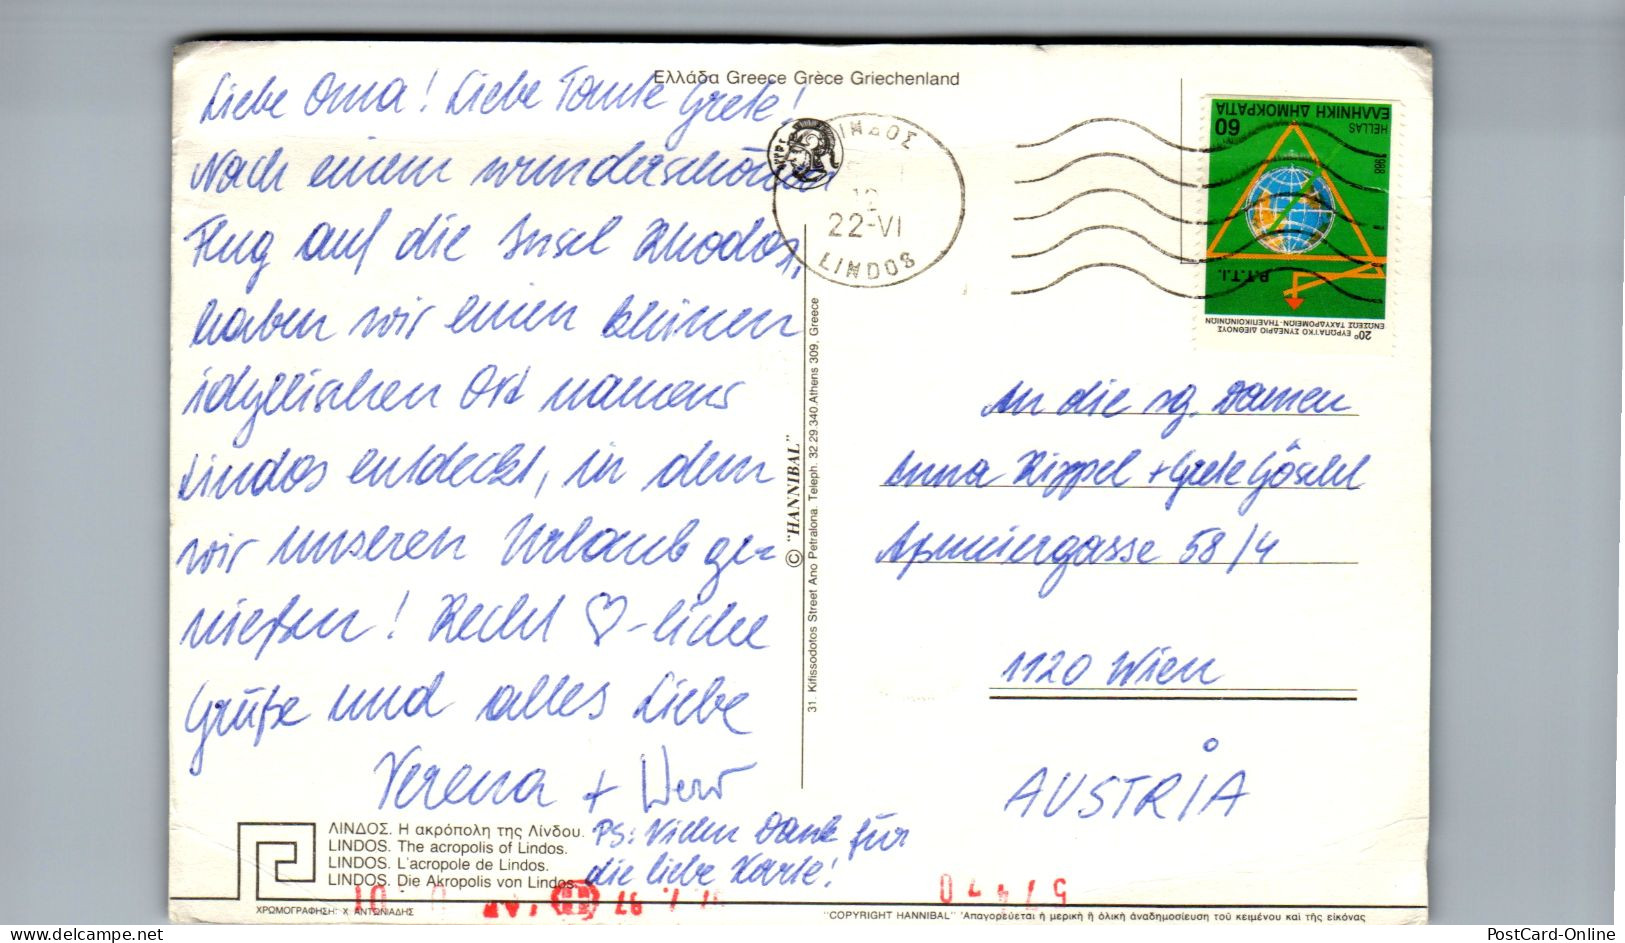 Ελλάδα Greece Grèce Griechenland
Liebe Oma! Liebe Tante Grete!
Nach einem wunderschönen
Flug auf die Insel Rhodos,
haben wir einen kleinen
idyllischen Ort namens
Lindos entdeckt, in dem
wir unseren Urlaub ge=
nießen! Recht ♡-liche
Grüße und alles Liebe
Verena +
PS: Vielen Dank für
die liebe Karte!
ΛΙΝΔΟΣ. Η ακρόπολη της Λίνδου.
LINDOS. The acropolis of Lindos.
LINDOS. L'acropole de Lindos.
LINDOS. Die Akropolis von Lindos.
ΧΡΩΜΟΓΡΑΦΗΣΗ: Χ ΑΝΤΩΝΙΑΔΗΣ
© "HANNIBAL"
31. Kifissodotos Street Ano Petralona. Teleph. 32.29.340 Athens 309, Greece
ΛΙΝΔΟΣ
12
22-VI
LINDOS
60
ΕΛΛΗΝΙΚΗ ΔΗΜΟΚΡΑΤΙΑ
HELLAS
1988
P.T.T.I.
20ο ΕΥΡΩΠΑΪΚΟ ΣΥΝΕΔΡΙΟ ΔΙΕΘΝΟΥΣ
ΕΝΩΣΕΩΣ ΤΑΧΥΔΡΟΜΕΙΩΝ-ΤΗΛΕΠΙΚΟΙΝΩΝΙΩΝ
An die sg. Damen
Anna Rippel + Grete Göschl
58/4
1120 Wien
AUSTRIA
57470
"COPYRIGHT HANNIBAL" 'Απαγορεύεται ή μερική ή όλική άναδημοσίευση τοῦ κειμένου καί τῆς είκόνας
PostCard.com
PostCard-Online